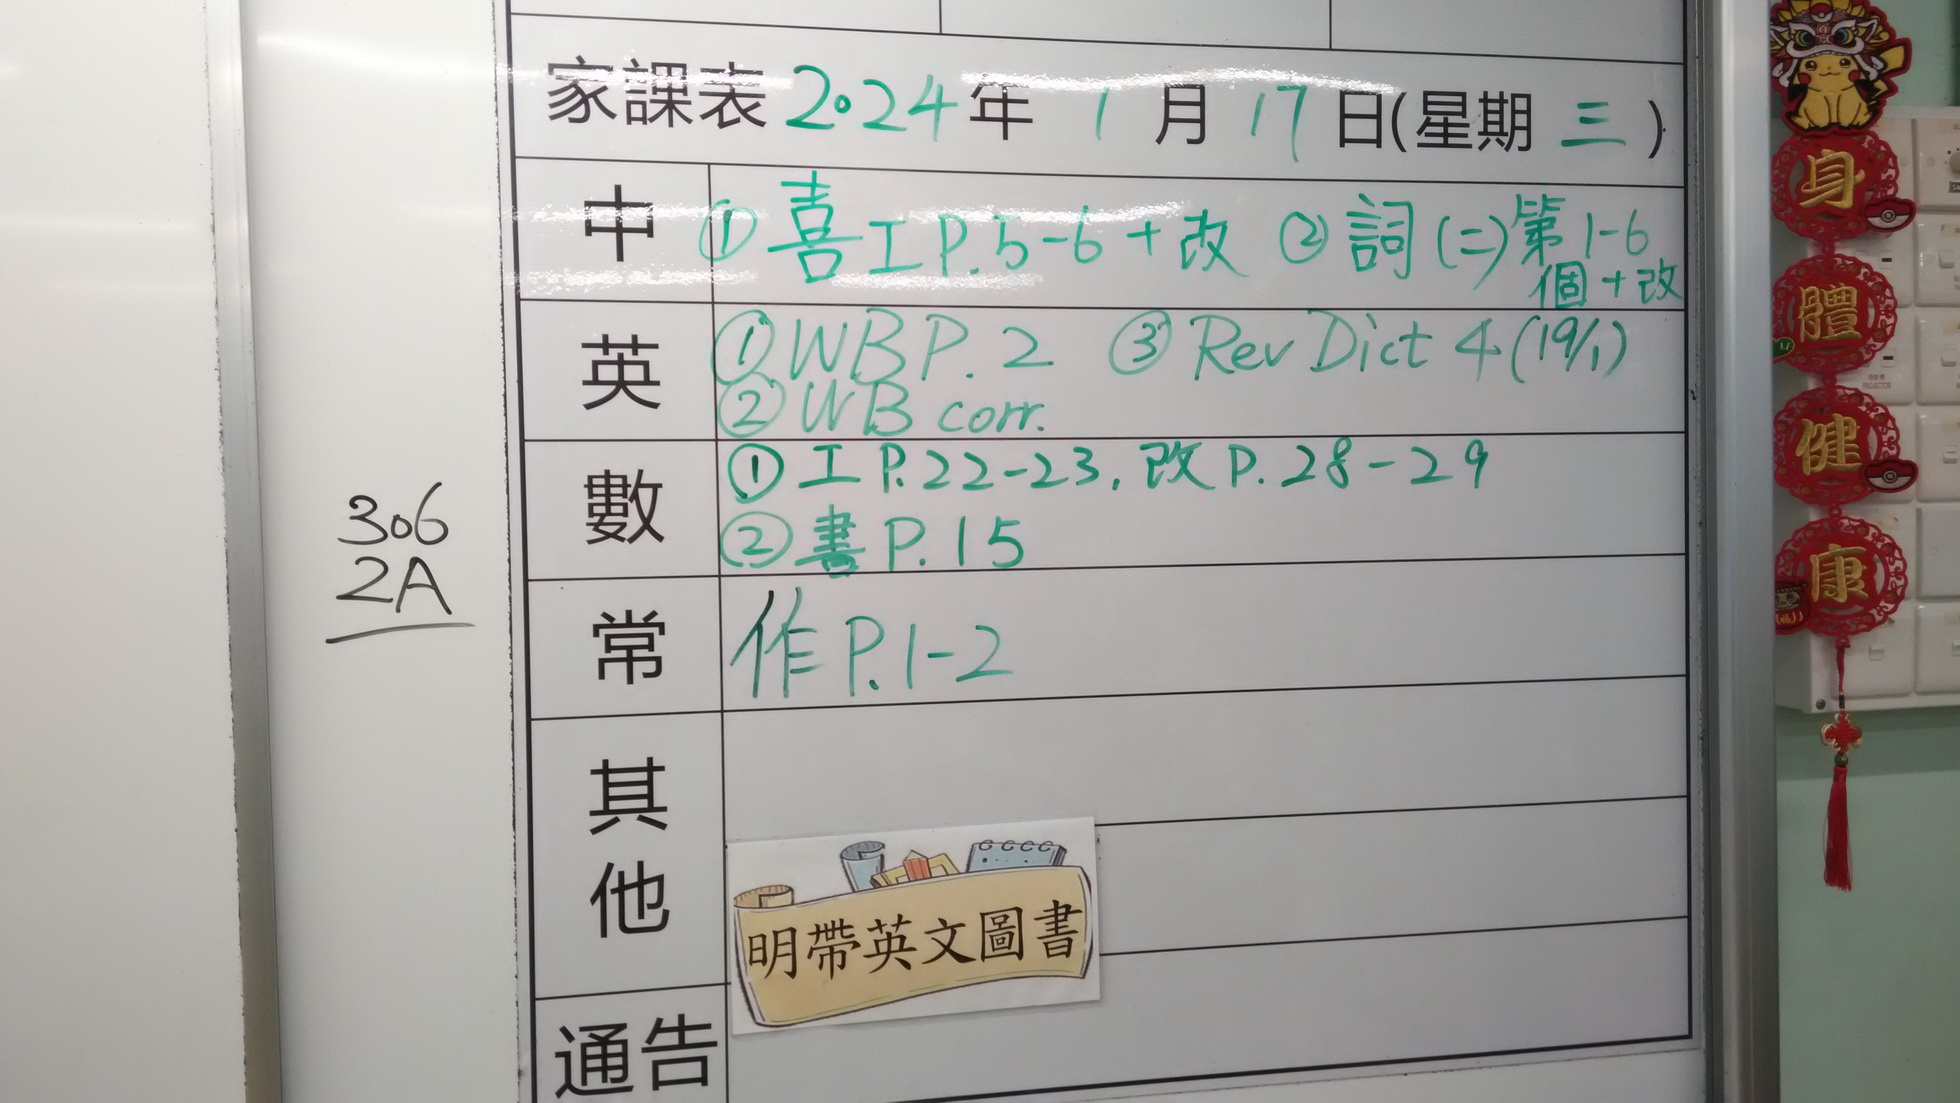 家課表 2024 年 1 月 17 日(星期 三 )
中 ① 喜工P.5-6+改 ② 詞(二)第1-6
個+改
英 ① WB P.2 ③ Rev Dict 4 (19/1)
② WB corr.
數 ① 工P.22-23, 改P.28-29
② 書P.15
常 作P.1-2
其他
明帶英文圖書
通告
306
2A
身
體
健
康